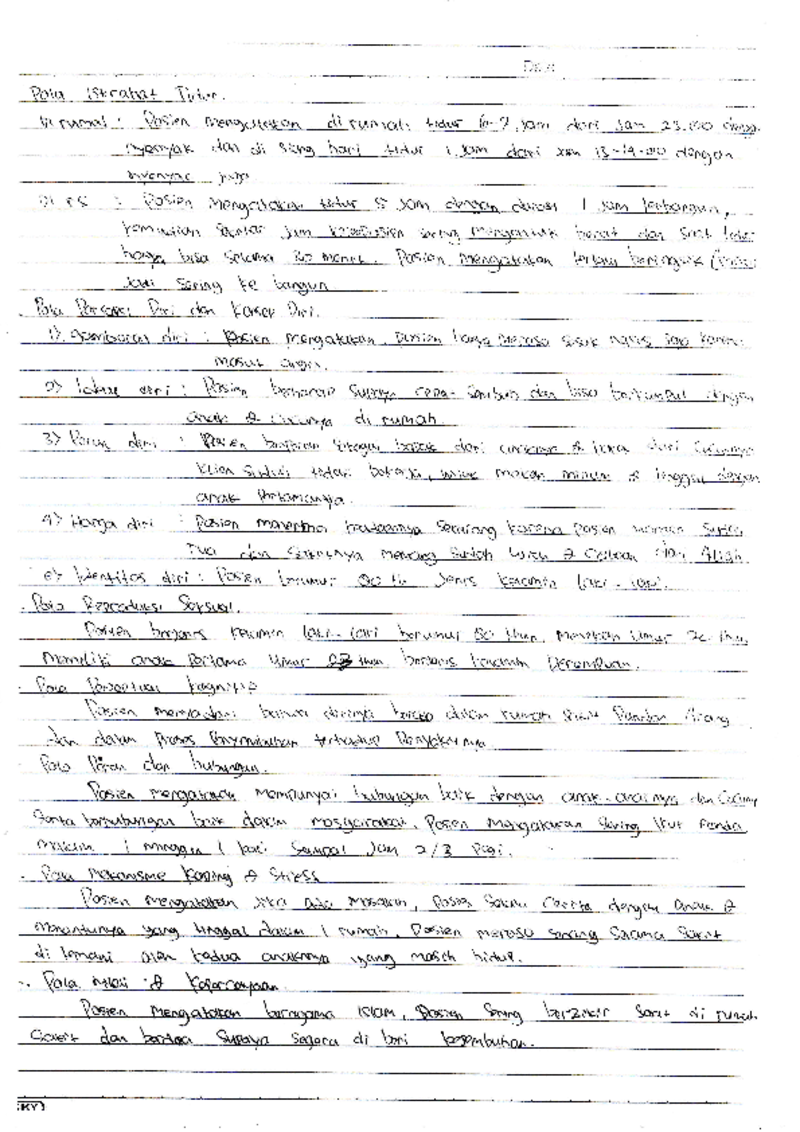 Pola Istirahat Tidur.
Di rumah : Pasien mengatakan di rumah tidur 6-7 jam dari jam 23.00 dengan
nyenyak dan di siang hari tidur 1 jam dari jam 13-14.00 dengan
nyenyak juga
Di RS : Pasien mengatakan tidur 5 jam dengan durasi 1 jam terbangun,
kemudian sekitar jam sering mengantuk berat dan saat
hanya bisa selama menit. Pasien mengatakan
jadi sering ke bangun
Pola Persepsi Diri dan Konsep Diri.
1) Gambaran diri : Pasien mengatakan, pasien hanya merasa sesak nafas saja karena
masuk angin.
2) Ideal diri : Pasien berharap supaya cepat sembuh dan bisa berkumpul dengan
anak & cucunya di rumah.
3) Peran diri : Pasien berperan sebagai bapak dari anaknya & kakek dari cucunya
klien sudah tidak bekerja, untuk makan minum & tinggal dengan
anak pertamanya.
4) Harga diri : Pasien menerima keadaannya sekarang karena pasien sudah
tua dan memang sudah &  dari Allah
5) Identitas diri : Pasien berumur 80 th jenis kelamin laki-laki.
Pola Reproduksi Seksual.
Pasien berjenis kelamin laki-laki berumur 80 thn, menikah umur thn,
memiliki anak pertama umur thn berjenis kelamin perempuan.
Pola Perseptual Kognitif
Pasien menyadari bahwa dirinya berada dalam rumah sakit Pandan Arang
dan dalam proses penyembuhan terhadap penyakitnya
Pola Peran dan hubungan.
Pasien mengatakan mempunyai hubungan baik dengan anak-anaknya dan cucunya
serta berhubungan baik dalam masyarakat. Pasien mengatakan sering ikut ronda
malam 1 minggu 1 kali sampai jam 2/3 pagi.
Pola Mekanisme Koping & Stress
Pasien mengatakan jika ada masalah, pasien selalu cerita dengan anak &
menantunya yang tinggal dalam 1 rumah, Pasien merasa senang selama sakit
di temani oleh kedua anaknya yang masih hidup.
Pola nilai & Kepercayaan.
Pasien mengatakan beragama Islam, Pasien sering berzikir saat di rumah
sakit dan berdoa supaya segera di beri kesembuhan.
KY